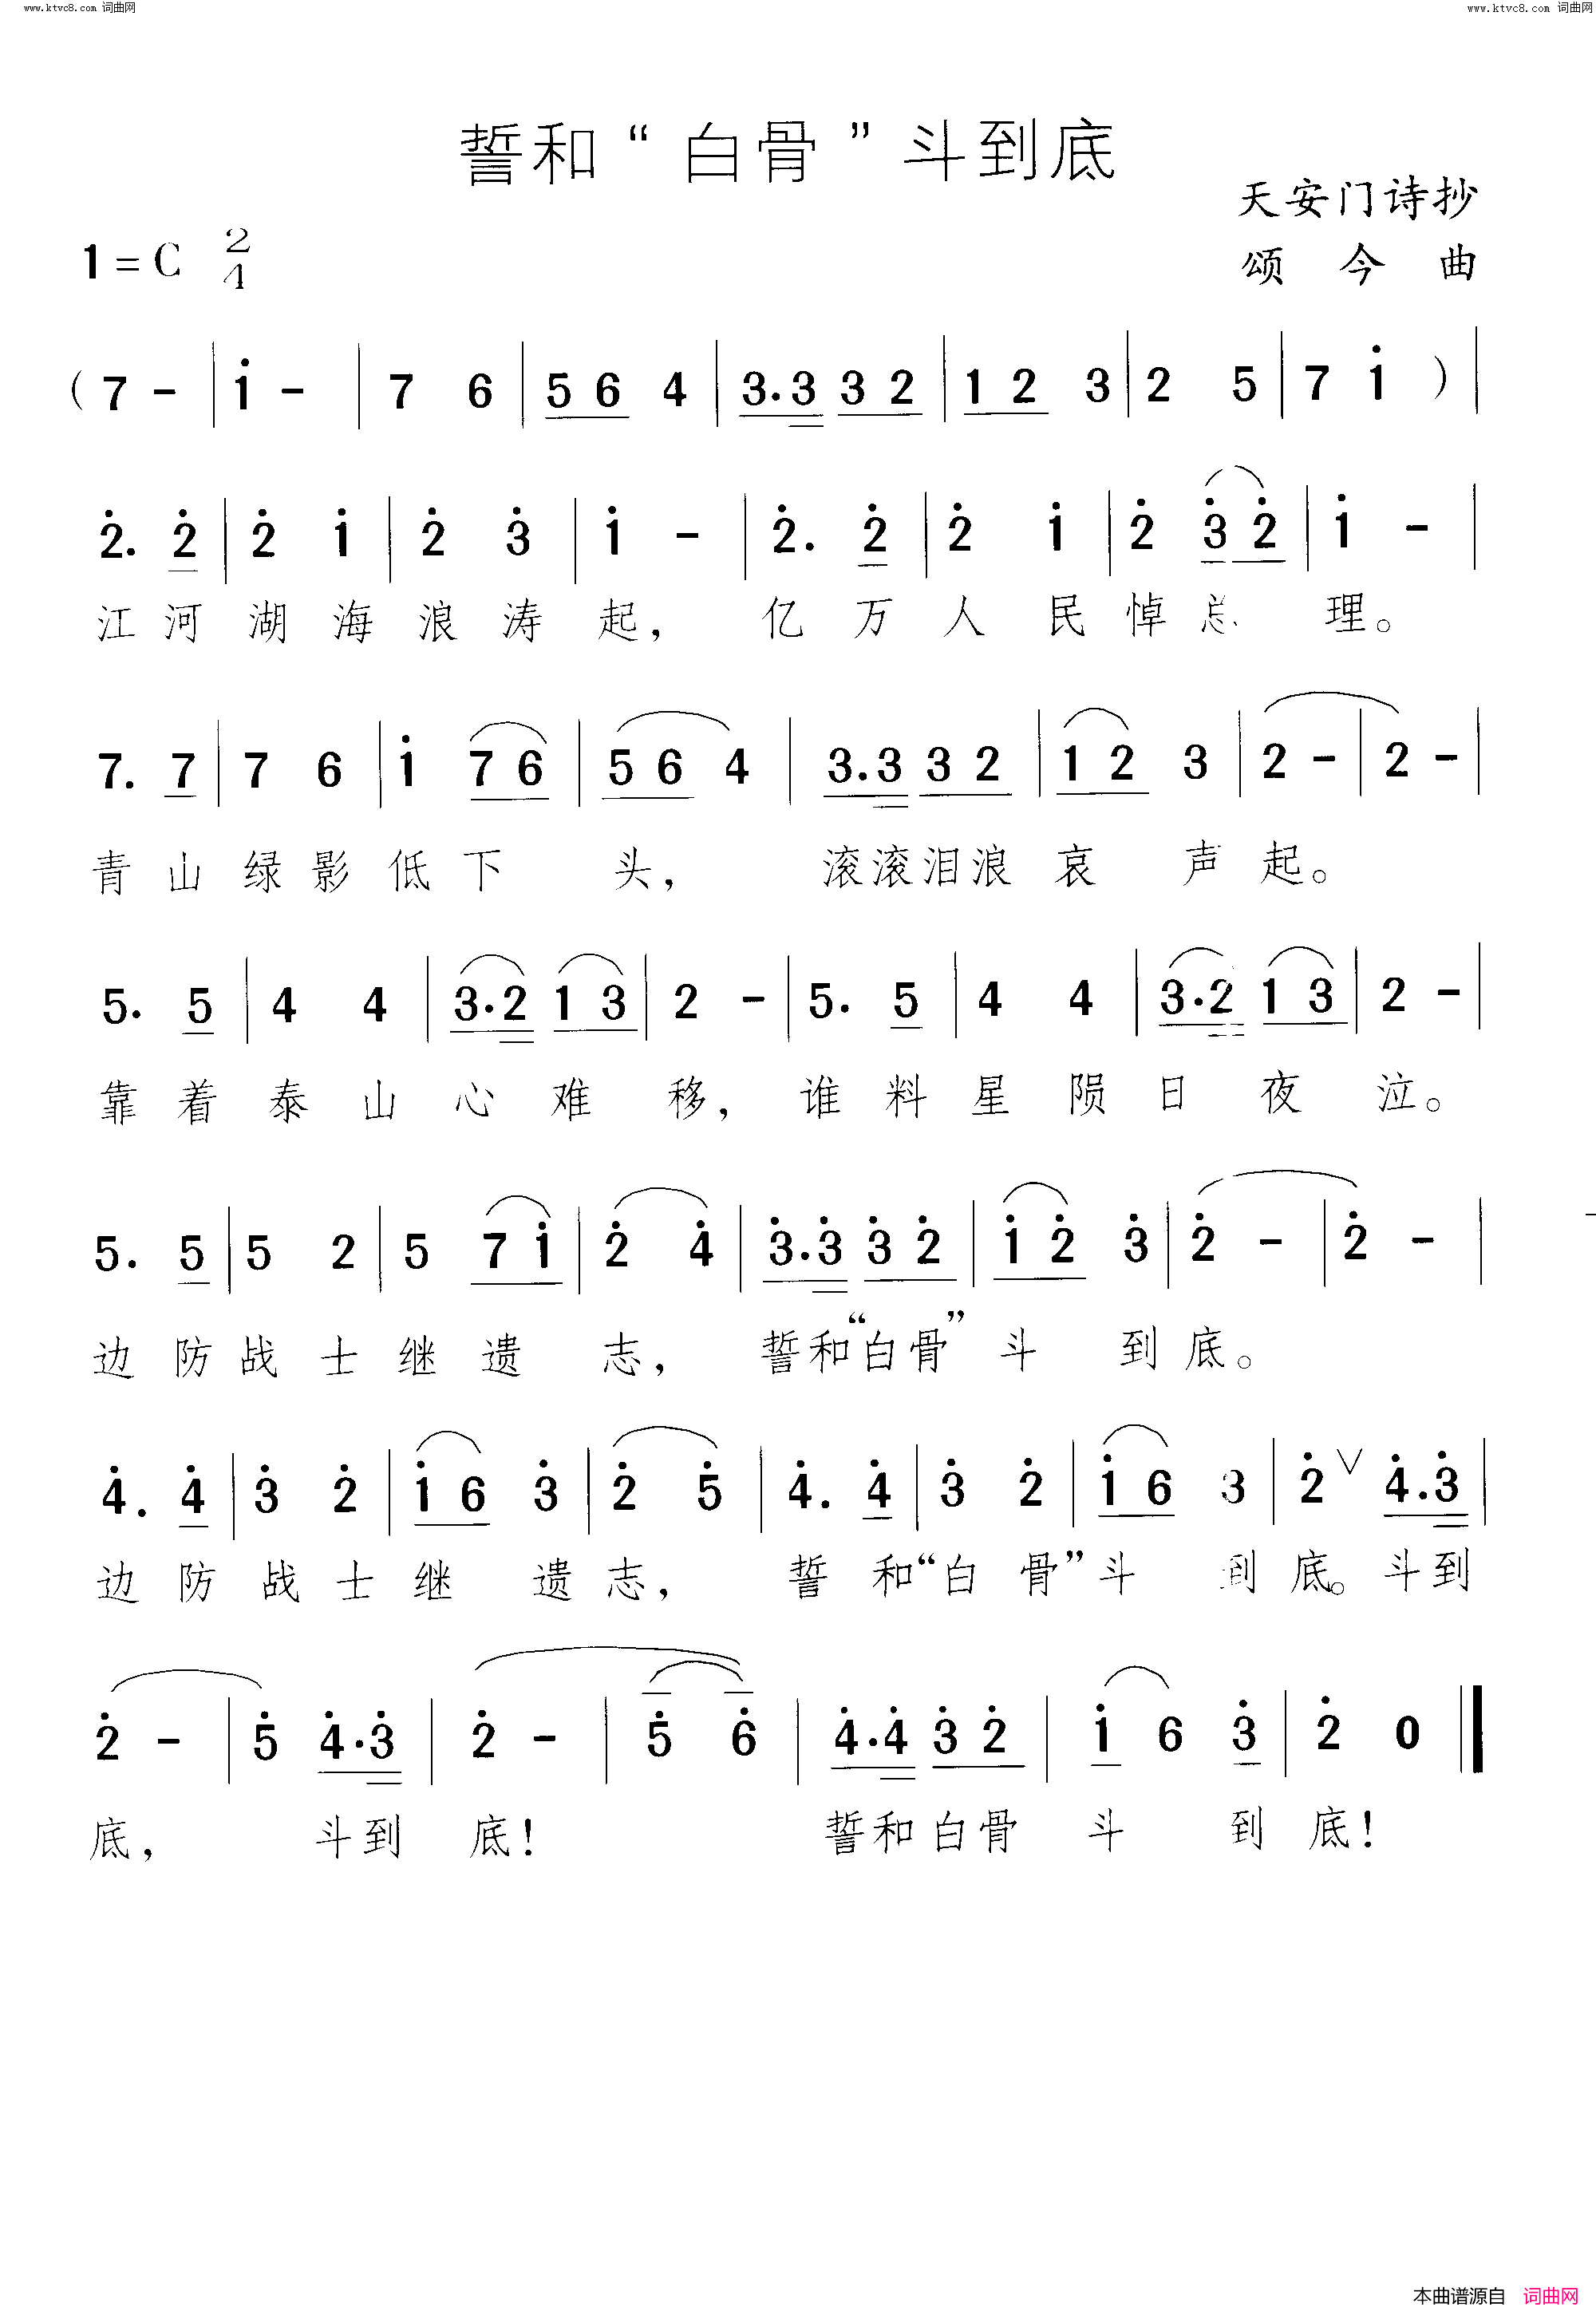 www.ktvc8.com 词曲网 www.ktvc8.com 词曲网
誓和“白骨”斗到底
天安门诗抄
1=C 2/4 颂今曲
( 7 - | i̇ - | 7 6 | 5 6 4 | 3. 3 3 2 | 1 2 3 | 2 5 | 7 i̇ ) |
2̇. 2̇ | 2̇ i̇ | 2̇ 3̇ | i̇ - | 2̇. 2̇ | 2̇ i̇ | 2̇ 3̇ 2̇ | i̇ - |
江河湖海浪涛起,亿万人民悼总理。
7. 7 | 7 6 | i̇ 7 6 | 5 6 4 | 3. 3 3 2 | 1 2 3 | 2 - | 2 - |
青山绿影低下头,滚滚泪浪哀声起。
5. 5 | 4 4 | 3. 2 1 3 | 2 - | 5. 5 | 4 4 | 3. 2 1 3 | 2 - |
靠着泰山心难移,谁料星陨日夜泣。
5. 5 | 5 2 | 5 7 i̇ | 2̇ 4̇ | 3̇. 3̇ 3̇ 2̇ | i̇ 2̇ 3̇ | 2̇ - | 2̇ - |
边防战士继遗志,誓和“白骨”斗到底。
4̇. 4̇ | 3̇ 2̇ | i̇ 6 3̇ | 2̇ 5̇ | 4̇. 4̇ | 3̇ 2̇ | i̇ 6 3 | 2̇ ∨ 4̇. 3̇ |
边防战士继遗志,誓和“白骨”斗到底。斗到
2̇ - | 5̇ 4̇. 3̇ | 2̇ - | 5̇ 6̇ | 4̇. 4̇ 3̇ 2̇ | i̇ 6 3̇ | 2̇ 0 ‖
底,斗到底!誓和白骨斗到底!
本曲谱源自 词曲网